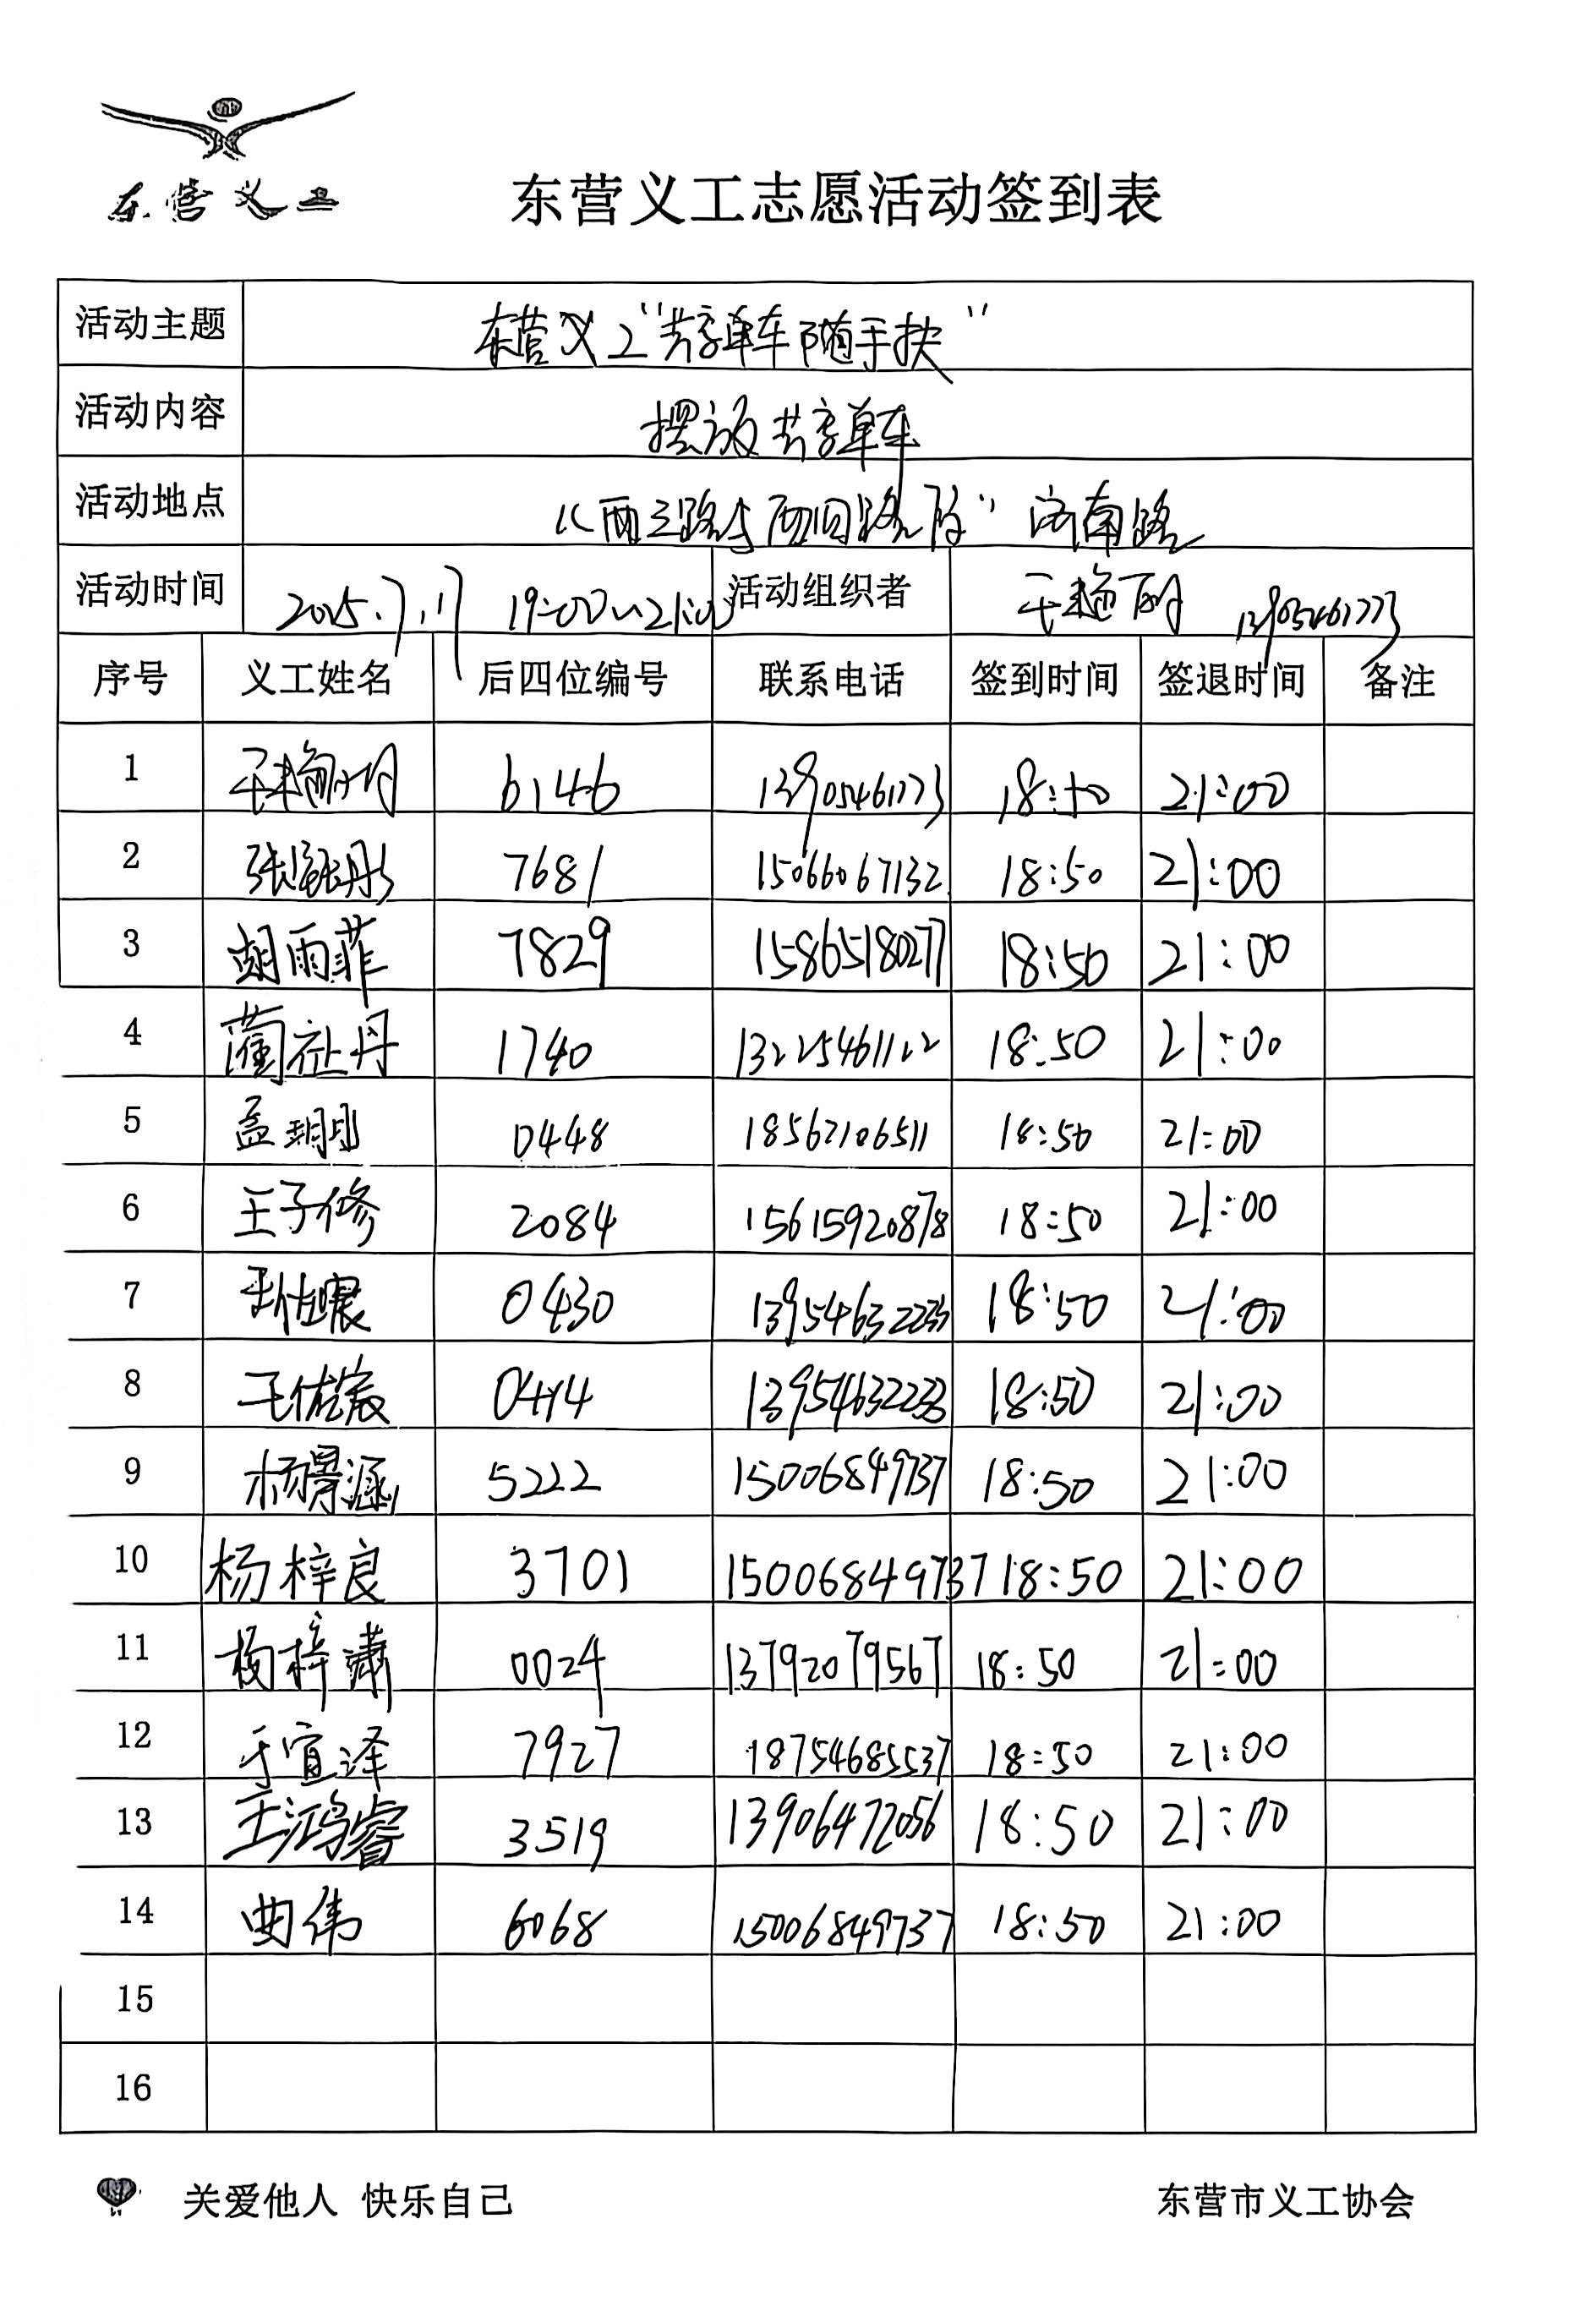 东营义工
东营义工志愿活动签到表
活动主题 东营义工“共享单车随手扶”
活动内容 摆放共享单车
活动地点 “西三路与西四路段”济南路
活动时间 2025.7.17 19:00~21:00 活动组织者 13905461773
序号 义工姓名 后四位编号 联系电话 签到时间 签退时间 备注
1 6146 13905461773 18:50 21:00
2 7681 15066067132 18:50 21:00
3 胡雨菲 7829 15865180277 18:50 21:00
4 1740 13225461122 18:50 21:00
5 孟玥彤 0448 18562106511 18:50 21:00
6 王子修 2084 15615920878 18:50 21:00
7 0430 13954632233 18:50 21:00
8 王佑宸 0414 13954632233 18:50 21:00
9 杨景涵 5222 15006849737 18:50 21:00
10 杨梓良 3701 15006849737 18:50 21:00
11 杨梓潇 0024 13792079567 18:50 21:00
12 于宜泽 7927 18754685537 18:50 21:00
13 王鸿睿 3519 13906472056 18:50 21:00
14 曲伟 6068 15006849737 18:50 21:00
15
16
关爱他人 快乐自己 东营市义工协会